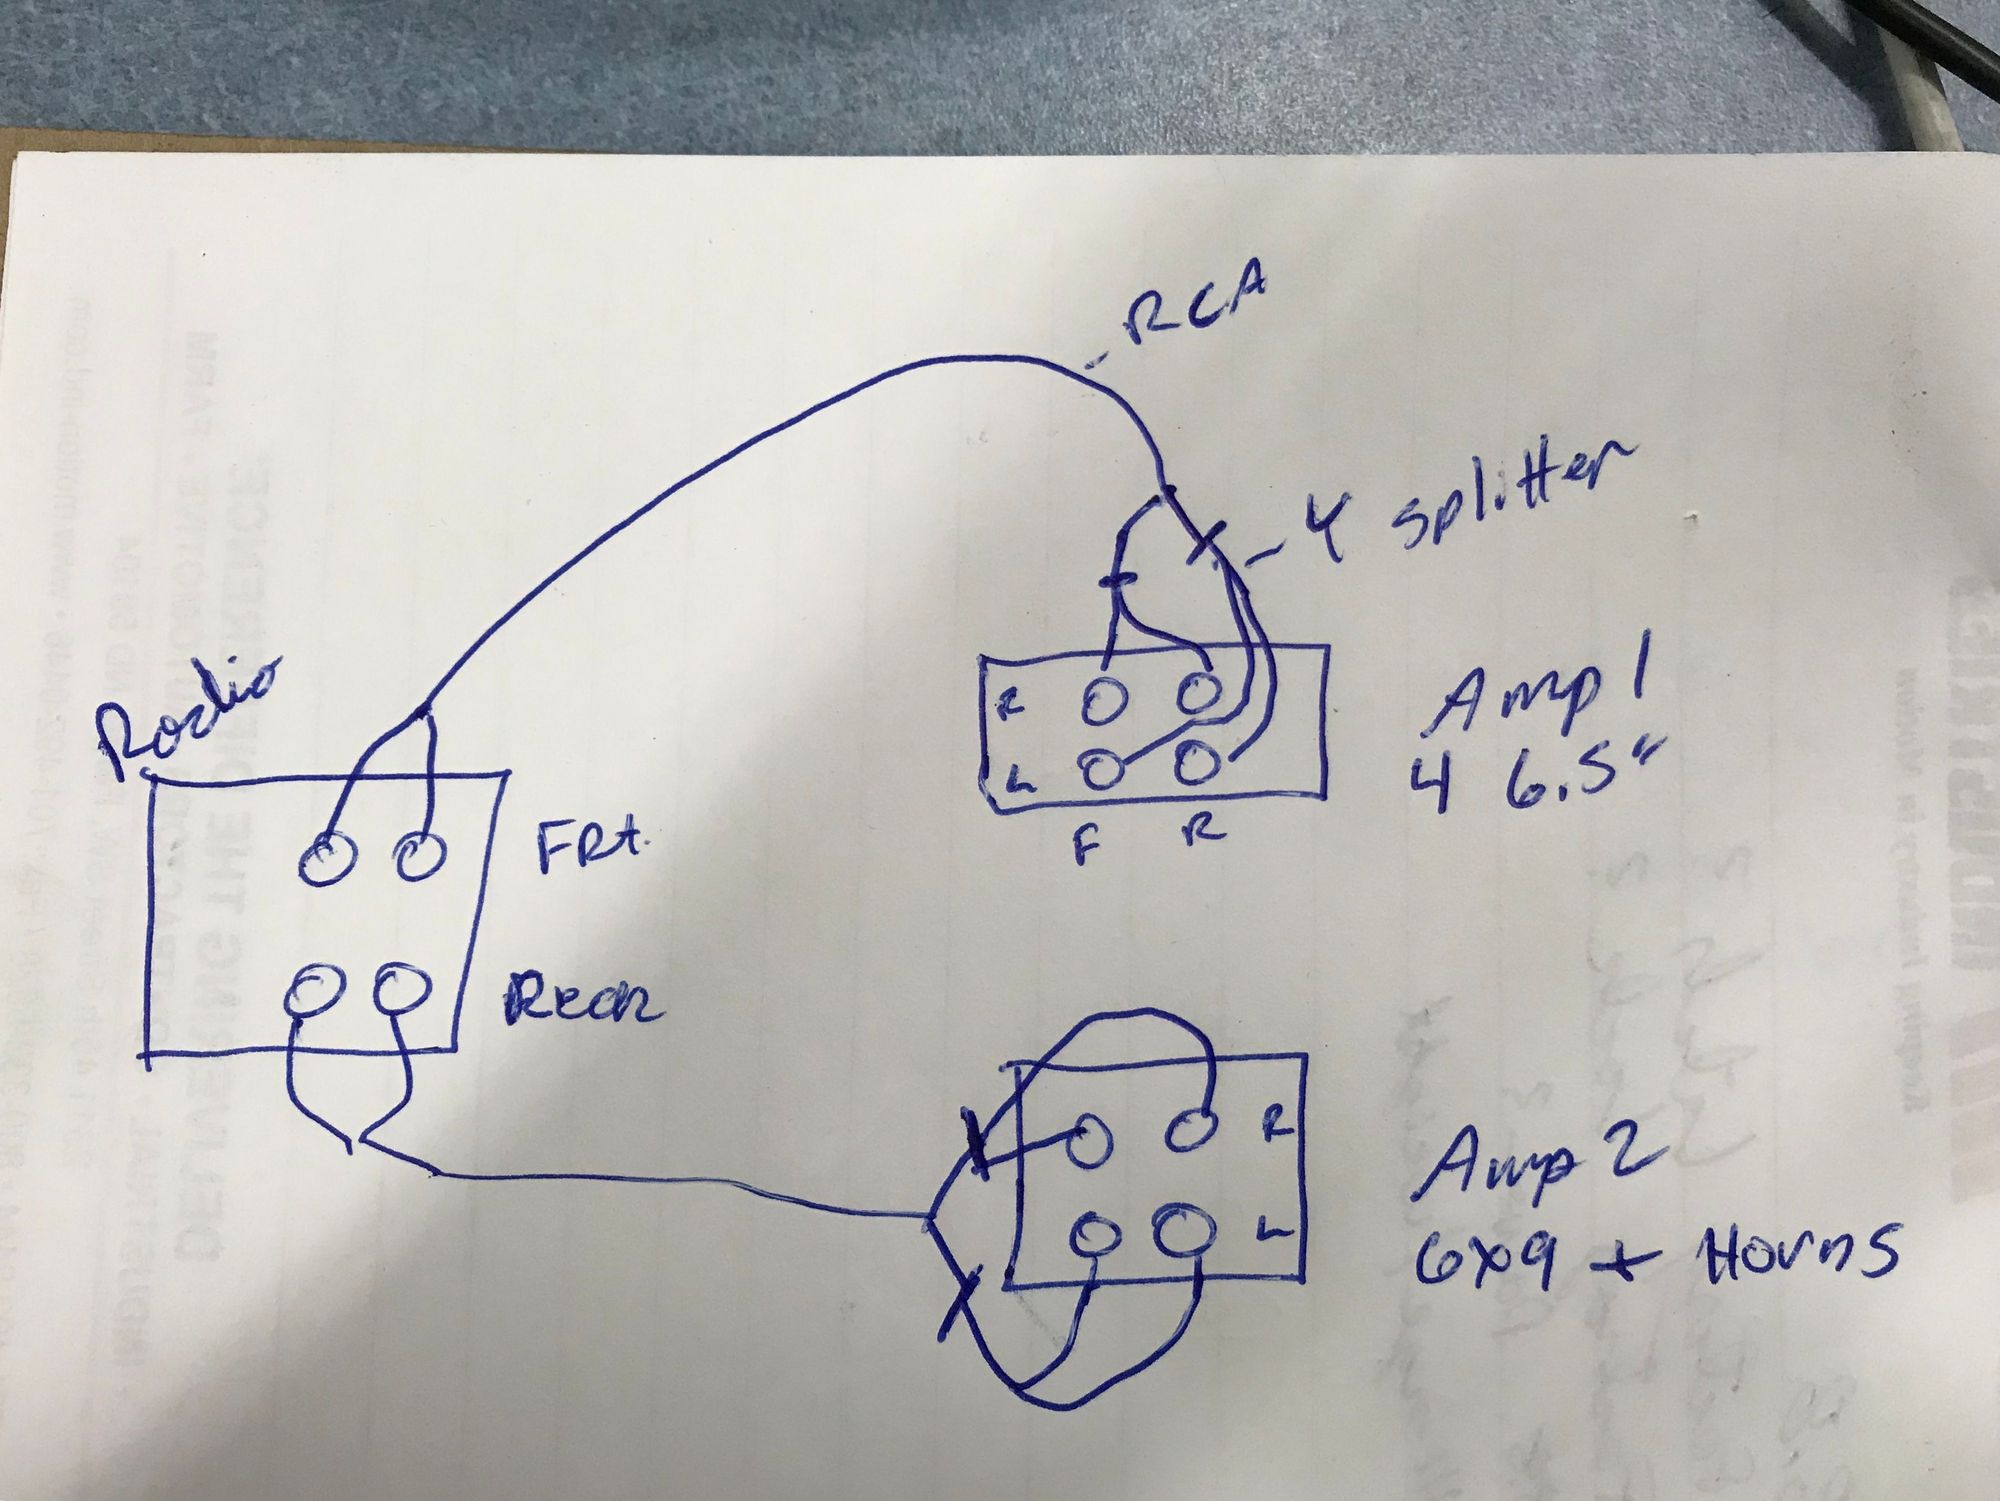 RCA
Y splitter
Radio
FRt.
Rear
R
L
F R
Amp 1
4 6.5"
R
L
Amp 2
6x9 + Horns